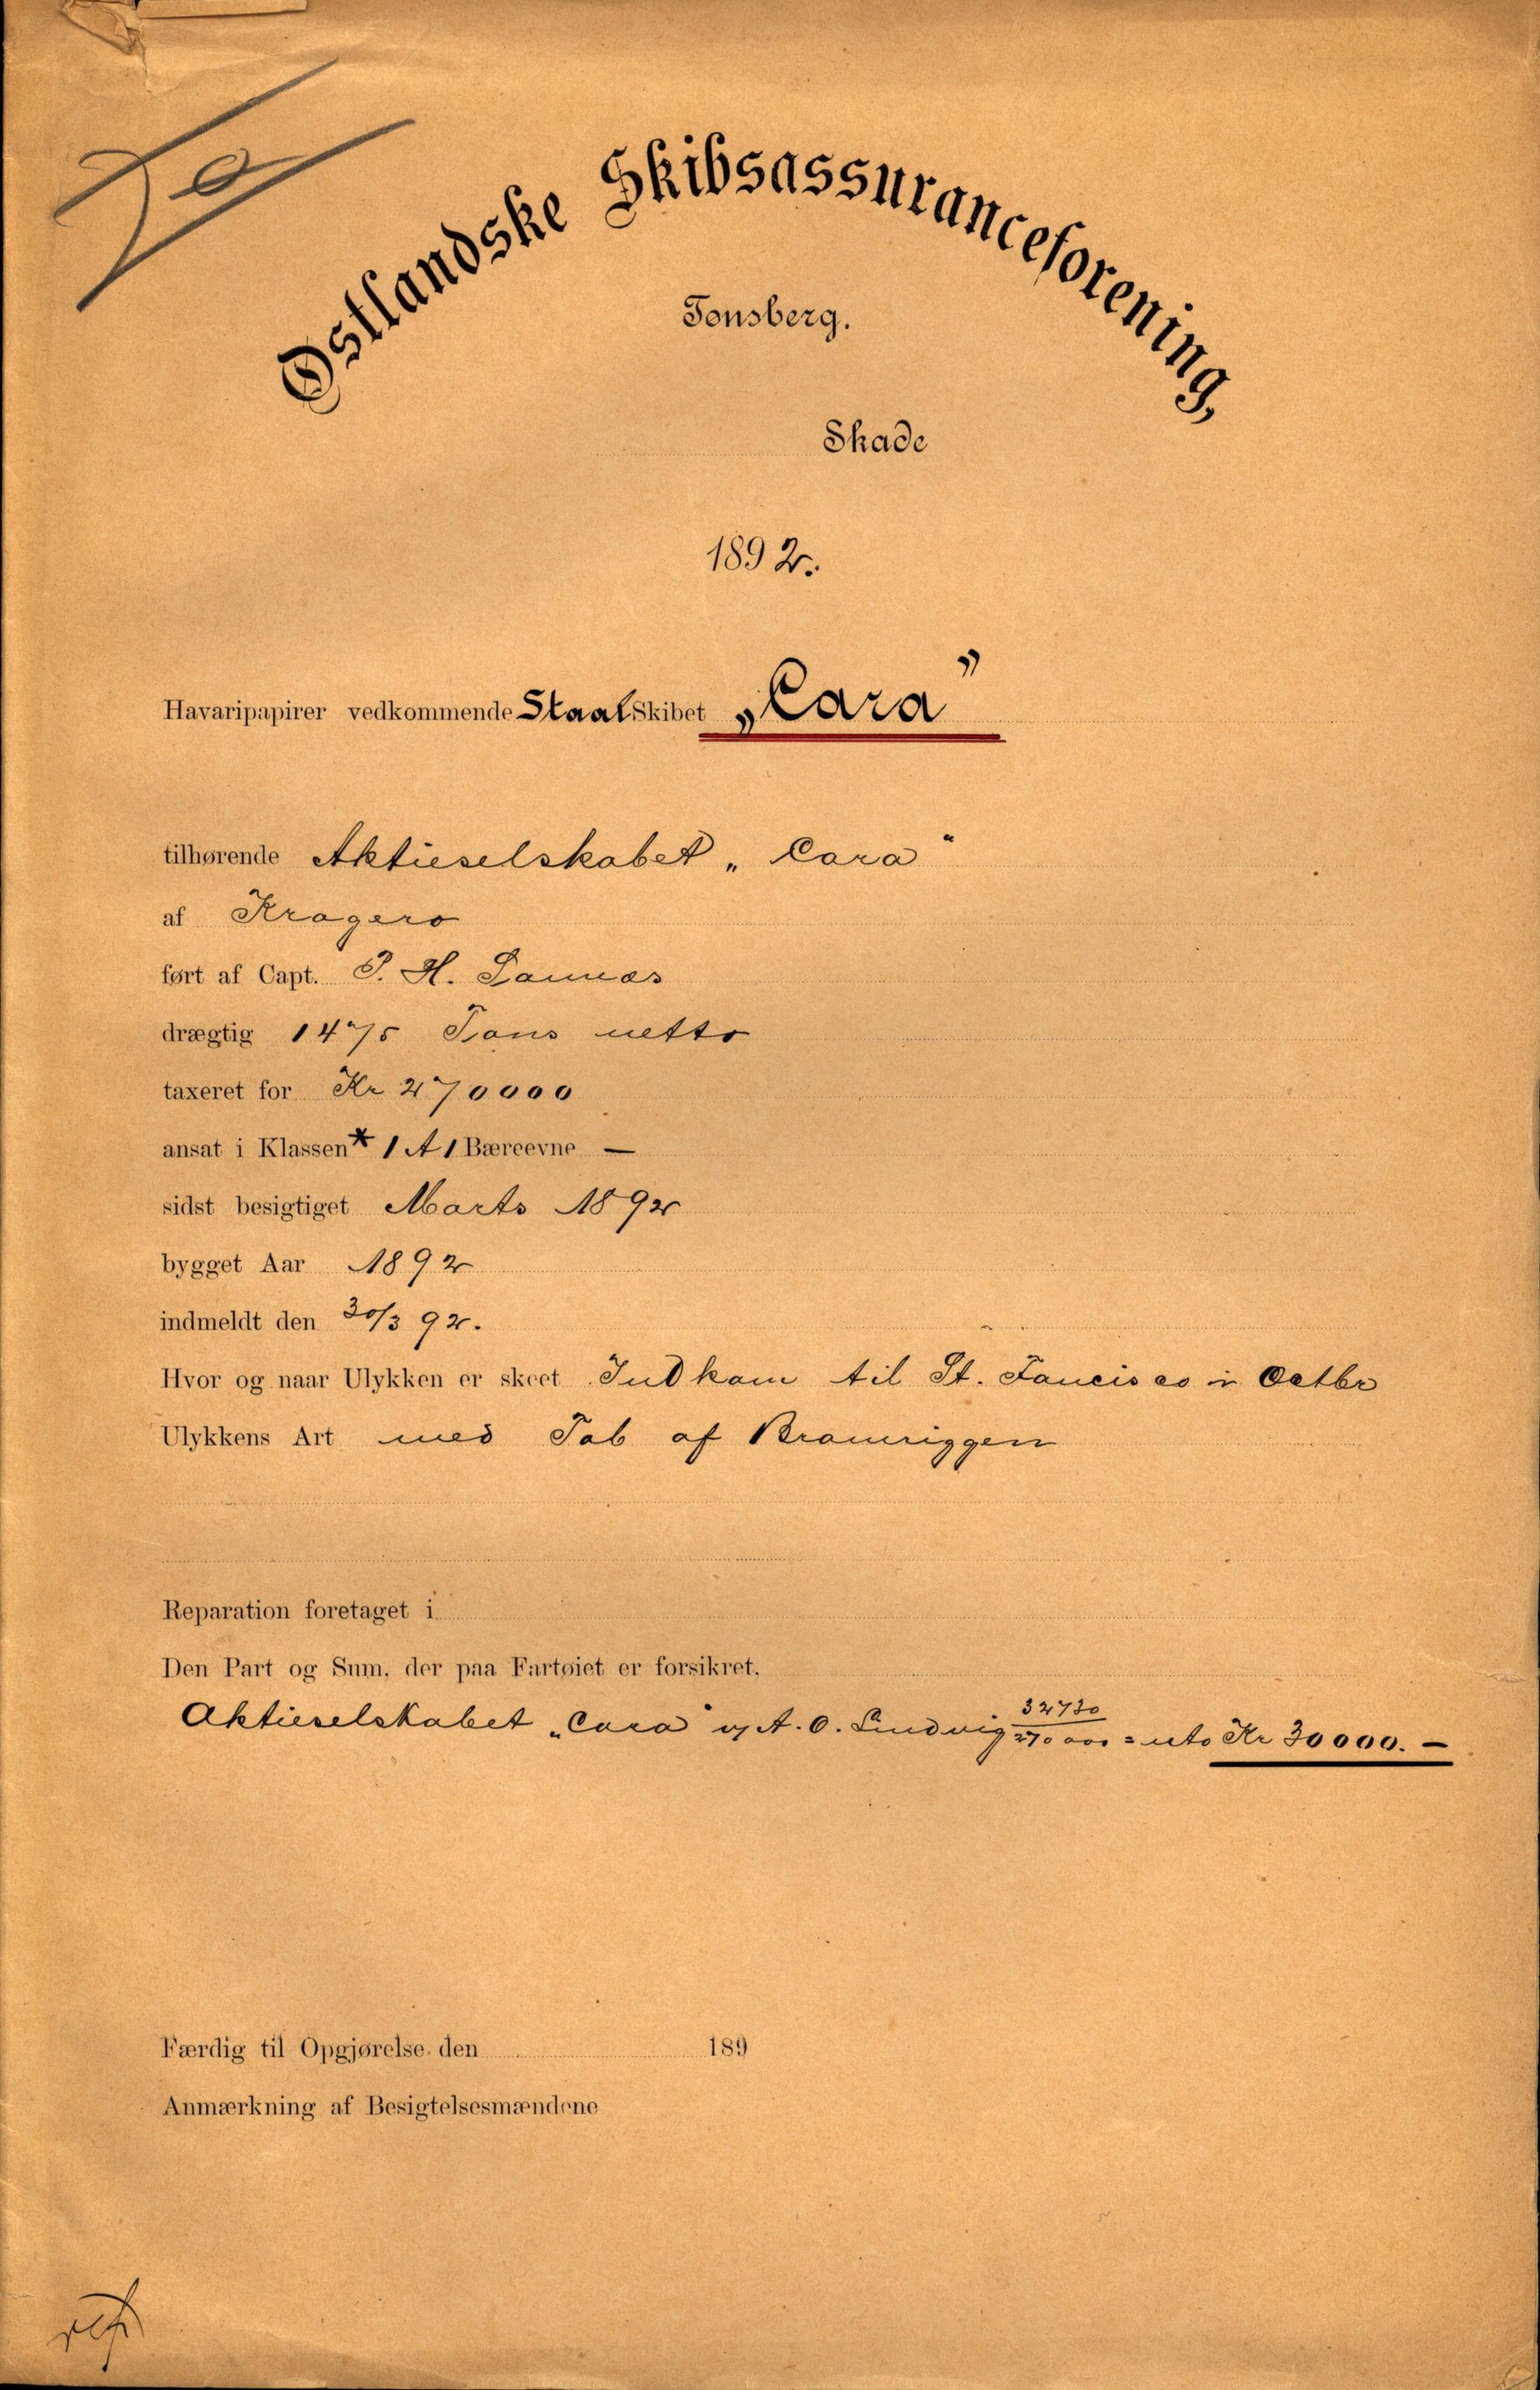 Østlandske Skibsassuranceforening,
Tønsberg.
Skade
1892.
Havaripapirer vedkommende StaalSkibet „Cara”
tilhørende Aktieselskabet „Cara“
af Kragerø
ført af Capt. P. H.
drægtig 1475 Tons netto
taxeret for Kr 270000
ansat i Klassen * 1 A 1 Bæreevne —
sidst besigtiget Marts 1892
bygget Aar 1892
indmeldt den 30/3 92.
Hvor og naar Ulykken er skeet Indkom til St. Fancisco i Octbr
Ulykkens Art med Tab af Bramriggen
Reparation foretaget i
Den Part og Sum, der paa Fartøiet er forsikret.
Aktieselskabet „Cara“ v/ A. O. Lindvig 32730/270000 = nto Kr 30000.—
Færdig til Opgjørelse den 189
Anmærkning af Besigtelsesmændene